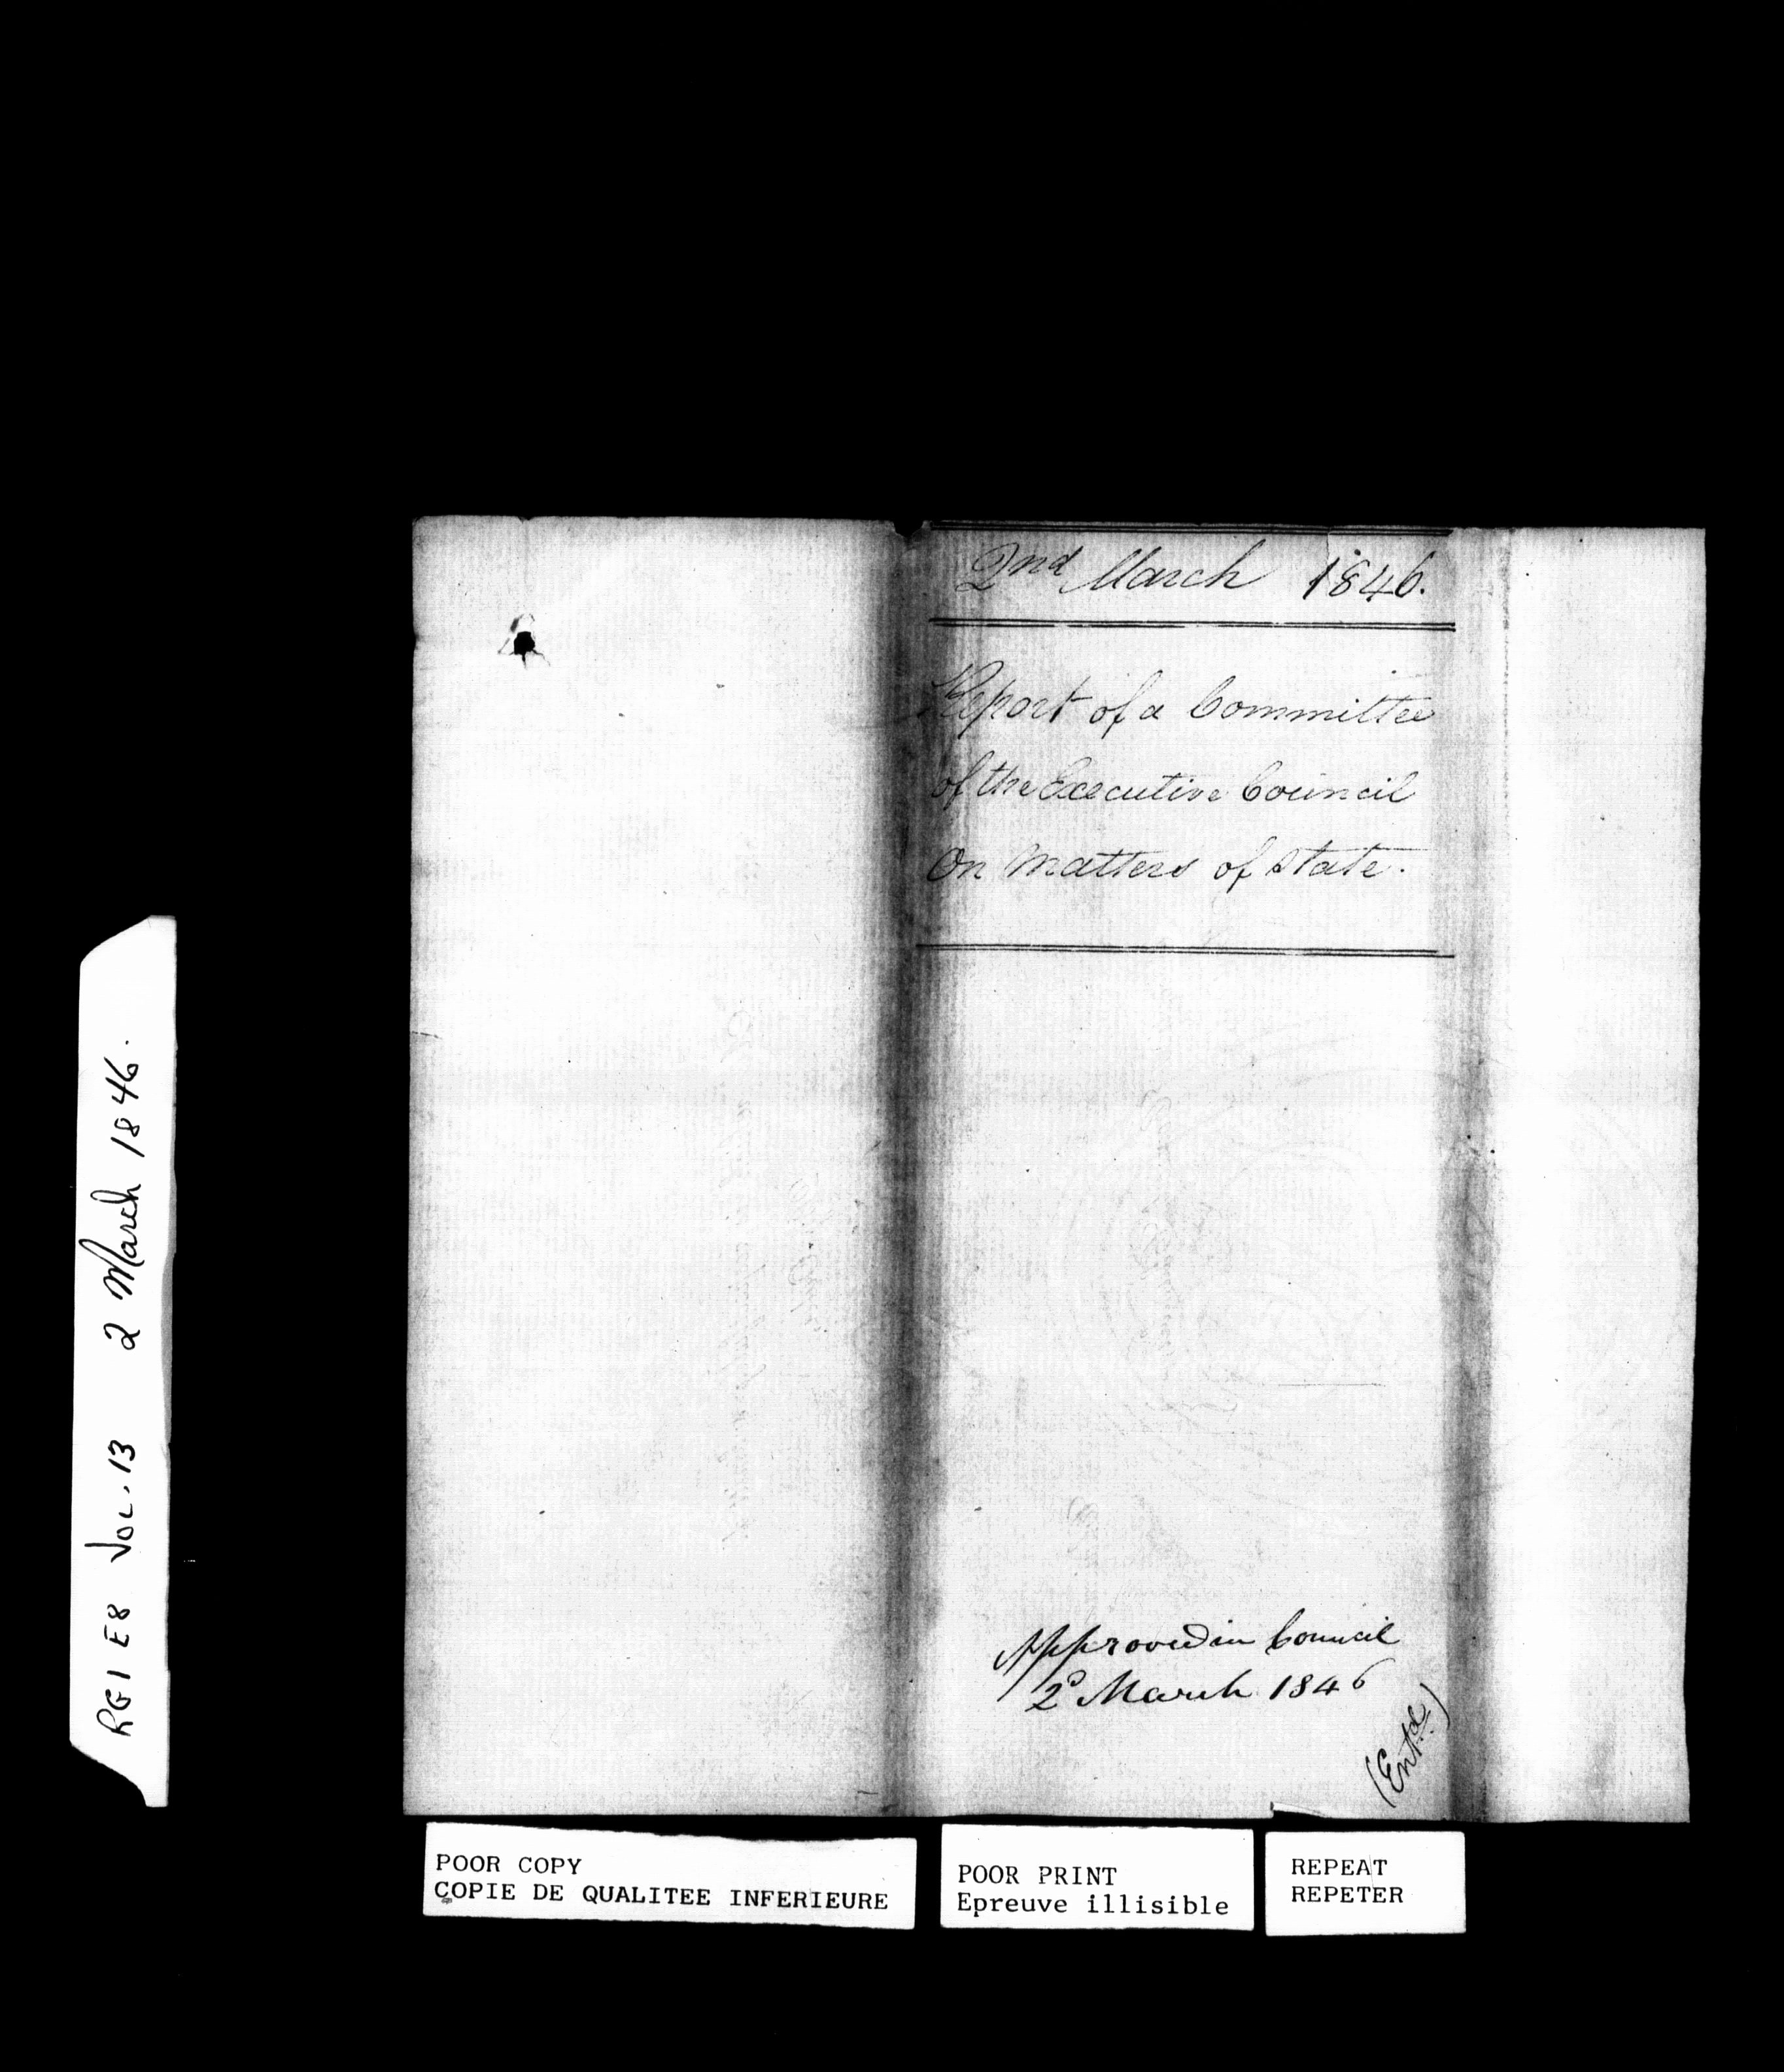 2nd March 1846.
Report of a Committee
of the Executive Council
On Matters of State.
Approved in Council
2d March 1846
(Entd.)
RG1 E8 VOL. 13 2 March 1846.
POOR COPY
COPIE DE QUALITEE INFERIEURE
POOR PRINT
Epreuve illisible
REPEAT
REPETER